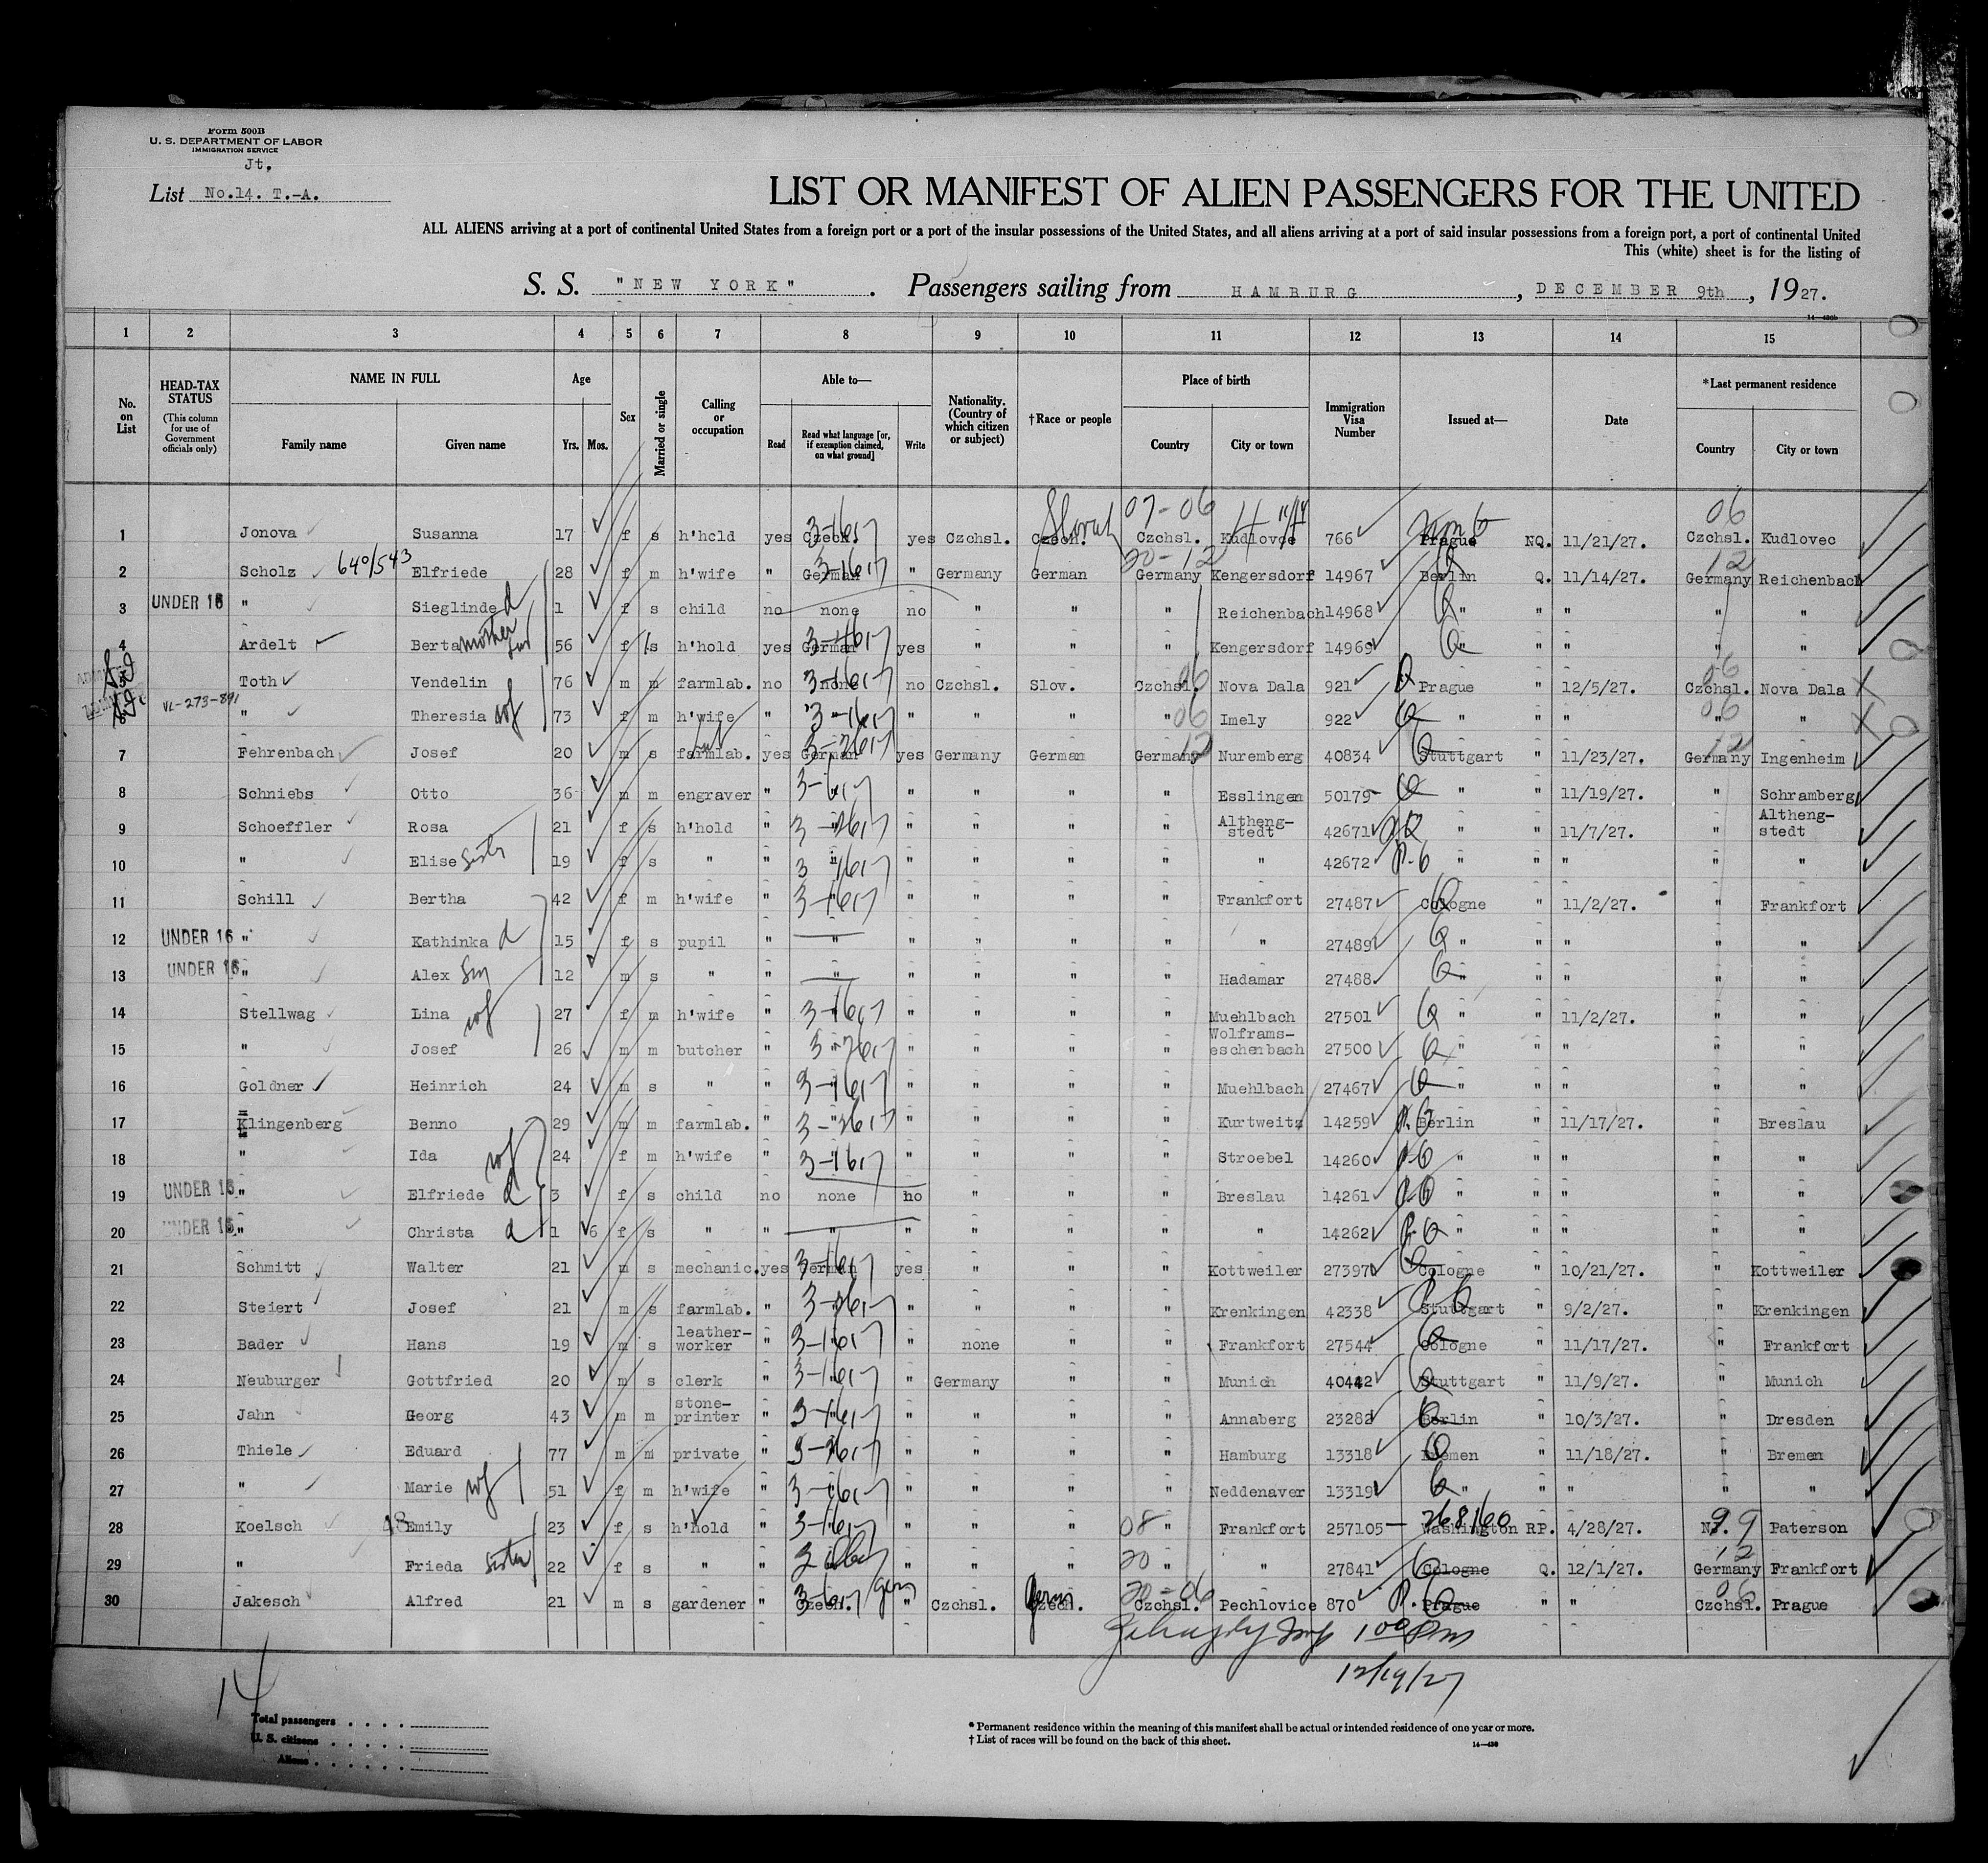 Form 500B
U. S. DEPARTMENT OF LABOR
IMMIGRATION SERVICE
Jt.
List No.14. T.-A.
LIST OR MANIFEST OF ALIEN PASSENGERS FOR THE UNITED
ALL ALIENS arriving at a port of continental United States from a foreign port or a port of the insular possessions of the United States, and all aliens arriving at a port of said insular possessions from a foreign port, a port of continental United
This (white) sheet is for the listing of
S. S. "NEW YORK". Passengers sailing from HAMBURG, DECEMBER 9th, 1927.
1 2 3 4 5 6 7 8 9 10 11 12 13 14 15
No. on List
HEAD-TAX STATUS (This column for use of Government officials only)
NAME IN FULL
Family name Given name
Age Yrs. Mos.
Sex
Married or single
Calling or occupation
Able to—
Read Read what language [or, if exemption claimed, on what ground] Write
Nationality. (Country of which citizen or subject)
†Race or people
Place of birth
Country City or town
Immigration Visa Number
Issued at—
Date
*Last permanent residence
Country City or town
07-06 06
1 Jonova Susanna 17 f s h'hold yes Czech. yes Czchsl. Czech. Slovak Czchsl. Kudlovce 766 Prague NQ. 11/21/27. Czchsl. Kudlovec
20-12 12
2 Scholz 640/543 Elfriede 28 f m h'wife " German " Germany German Germany Kengersdorf 14967 Berlin Q. 11/14/27. Germany Reichenbach
3 UNDER 16 " Sieglinde d 1 f s child no none no " " " Reichenbach 14968 " " " " "
4 Ardelt Berta mother 56 f s h'hold yes German yes " " " Kengersdorf 14969 " " " " "
Toth Vendelin 76 m m farmlab. no none no Czchsl. Slov. Czchsl. 06 Nova Dala 921 Prague " 12/5/27. Czchsl. 06 Nova Dala
VL-273-891 " Theresia wf 73 f m h'wife " " " " " " 06 Imely 922 " " " " 06 "
7 Fehrenbach Josef 20 m s farmlab. yes German yes Germany German Germany 12 Nuremberg 40834 Stuttgart " 11/23/27. Germany 12 Ingenheim
8 Schniebs Otto 36 m m engraver " " " " " " Esslingen 50179 " " 11/19/27. " Schramberg
9 Schoeffler Rosa 21 f s h'hold " " " " " " Altheng-stedt 42671 " " 11/7/27. " Altheng-stedt
10 " Elise sister 19 f s " " " " " " " " 42672 " " " " "
11 Schill Bertha 42 f m h'wife " " " " " " Frankfort 27487 Cologne " 11/2/27. " Frankfort
12 UNDER 16 " Kathinka d 15 f s pupil " " " " " " " 27489 " " " " "
13 UNDER 16 " Alex son 12 m s " " " " " " " Hadamar 27488 " " " " "
14 Stellwag Lina wf 27 f m h'wife " " " " " " Muehlbach 27501 " " 11/2/27. " "
15 " Josef 26 m m butcher " " " " " " Wolframs-eschenbach 27500 " " " " "
16 Goldner Heinrich 24 m s " " " " " " " Muehlbach 27467 " " " " "
17 Klingenberg Benno 29 m m farmlab. " " " " " " Kurtweitz 14259 Berlin " 11/17/27. " Breslau
18 " Ida wf 24 f m h'wife " " " " " " Stroebel 14260 " " " " "
19 UNDER 16 " Elfriede d 3 f s child no none no " " " Breslau 14261 " " " " "
20 UNDER 16 " Christa d 1 6 f s " " " " " " " " 14262 " " " " "
21 Schmitt Walter 21 m s mechanic. yes German yes " " " Kottweiler 27397 Cologne " 10/21/27. " Kottweiler
22 Steiert Josef 21 m s farmlab. " " " " " " Krenkingen 42338 Stuttgart " 9/2/27. " Krenkingen
23 Bader Hans 19 m s leather-worker " " " none " " Frankfort 27544 Cologne " 11/17/27. " Frankfort
24 Neuburger Gottfried 20 m s clerk " " " Germany " " Munich 40442 Stuttgart " 11/9/27. " Munich
25 Jahn Georg 43 m m stone-printer " " " " " " Annaberg 23282 Berlin " 10/3/27. " Dresden
26 Thiele Eduard 77 m m private " " " " " " Hamburg 13318 Bremen " 11/18/27. " Bremen
27 " Marie wf 51 f m h'wife " " " " " " Neddenaver 13319 " " " " "
28 Koelsch Emily 23 f s h'hold " " " " " 08 " Frankfort 257105 Washington RP. 4/28/27. NJ. Paterson
29 " Frieda sister 22 f s " " " " " " 20 " " 27841 Cologne Q. 12/1/27. Germany 12 Frankfort
30 Jakesch Alfred 21 m s gardener " Czech. Germ " Czchsl. Czech. Germ 20-06 Czchsl. Pechlovice 870 Prague " " Czchsl. 06 Prague
12/19/27
14
Total passengers
U. S. citizens
Aliens
* Permanent residence within the meaning of this manifest shall be actual or intended residence of one year or more.
† List of races will be found on the back of this sheet.
14—430